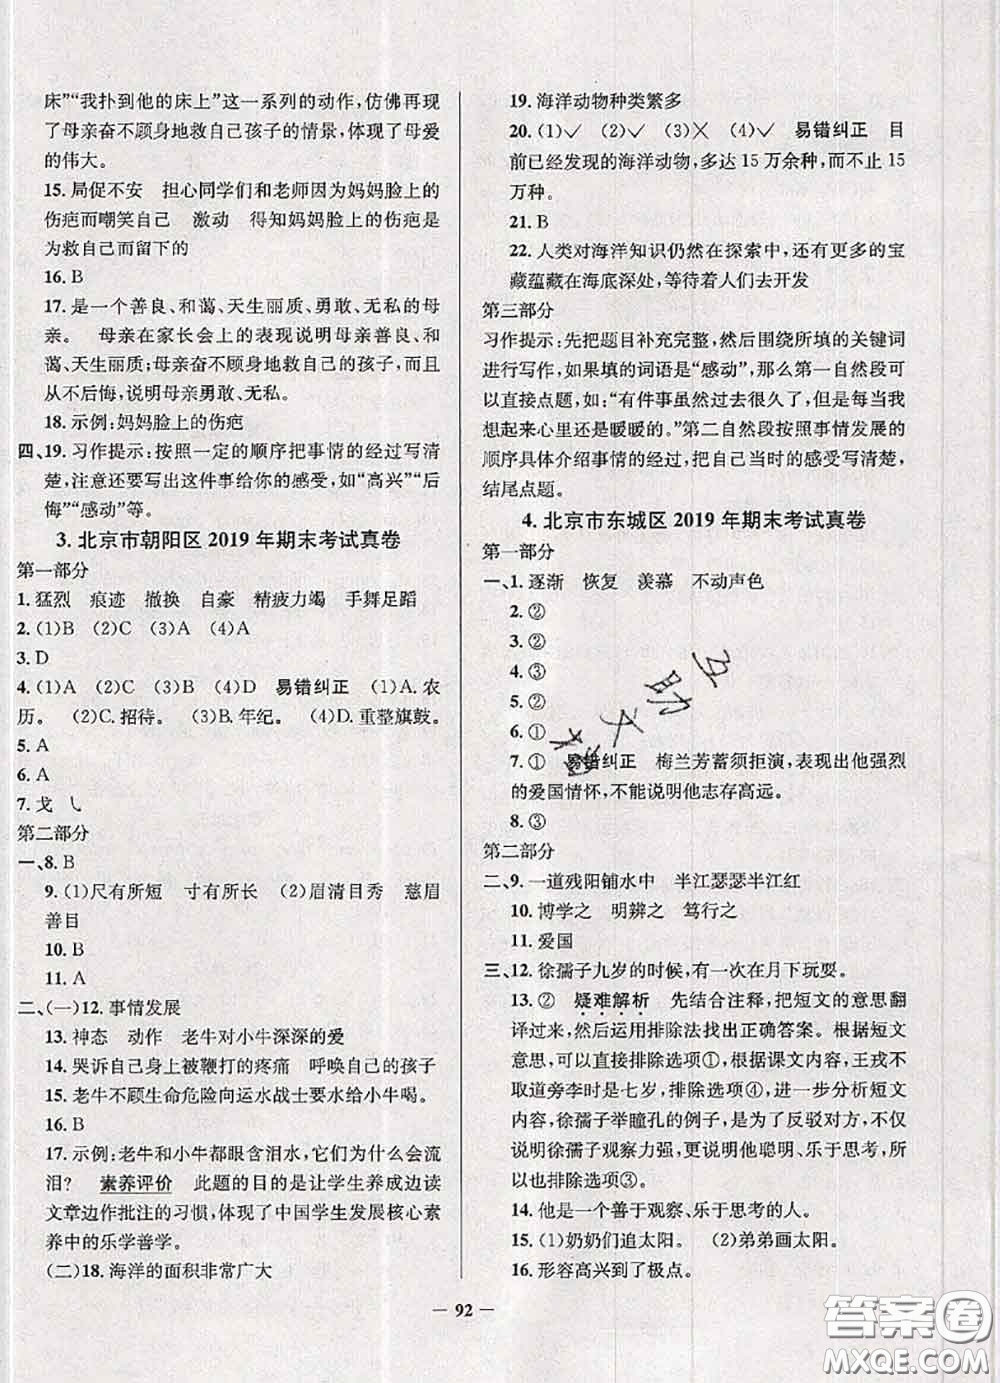 床”“我扑到他的床上”这一系列的动作,仿佛再现
了母亲奋不顾身地救自己孩子的情景,体现了母爱
的伟大。
15. 局促不安　担心同学们和老师因为妈妈脸上的
伤疤而嘲笑自己　激动　得知妈妈脸上的伤疤是
为救自己而留下的
16. B
17. 是一个善良、和蔼、天生丽质、勇敢、无私的母
亲。　母亲在家长会上的表现说明母亲善良、和
蔼、天生丽质;母亲奋不顾身地救自己的孩子,而且
从不后悔,说明母亲勇敢、无私。
18. 示例:妈妈脸上的伤疤
四、19. 习作提示:按照一定的顺序把事情的经过写清
楚,注意还要写出这件事给你的感受,如“高兴”“后
悔”“感动”等。
3. 北京市朝阳区 2019 年期末考试真卷
第一部分
1. 猛烈　痕迹　撤换　自豪　精疲力竭　手舞足蹈
2. (1)B　(2)C　(3)A　(4)A
3. D
4. (1)A　(2)C　(3)B　(4)D　易错纠正　(1)A. 农
历。　(2)C. 招待。　(3)B. 年纪。　(4)D. 重整旗鼓。
5. A
6. A
7. 戈　乀
第二部分
一、8. B
9. (1)尺有所短　寸有所长　(2)眉清目秀　慈眉
善目
10. B
11. A
二、(一)12. 事情发展
13. 神态　动作　老牛对小牛深深的爱
14. 哭诉自己身上被鞭打的疼痛　呼唤自己的孩子
15. 老牛不顾生命危险向运水战士要水给小牛喝。
16. B
17. 示例:老牛和小牛都眼含泪水,它们为什么会流
泪?　素养评价　此题的目的是让学生养成边读
文章边作批注的习惯,体现了中国学生发展核心素
养中的乐学善学。
(二)18. 海洋的面积非常广大
19. 海洋动物种类繁多
20. (1)✓　(2)✓　(3)✕　(4)✓　易错纠正　目
前已经发现的海洋动物,多达 15 万余种,而不止 15
万种。
21. B
22. 人类对海洋知识仍然在探索中,还有更多的宝
藏蕴藏在海底深处,等待着人们去开发
第三部分
习作提示:先把题目补充完整,然后围绕所填的关键词
进行写作,如果填的词语是“感动”,那么第一自然段可
以直接点题,如:“有件事虽然过去很久了,但只要我
想起来心里还是暖暖的。”第二自然段按照事情发展的
顺序具体介绍事情的经过,把自己当时的感受写清楚,
结尾点题。
4. 北京市东城区 2019 年期末考试真卷
第一部分
一、1. 逐渐　恢复　羡慕　不动声色
2. ②
3. ②
4. ③
5. ②
6. ①
7. ①　易错纠正　梅兰芳蓄须拒演,表现出他强烈
的爱国情怀,不能说明他志存高远。
8. ③
第二部分
二、9. 一道残阳铺水中　半江瑟瑟半江红
10. 博学之　明辨之　笃行之
11. 爱国
三、12. 徐孺子九岁的时候,有一次在月下玩耍。
13. ②　疑难解析　先结合注释,把短文的意思翻
译过来,然后运用排除法找出正确答案。根据短文
意思,可以直接排除选项①,根据课文内容,王戎不
取道旁李时是七岁,排除选项④,进一步分析短文
内容,徐孺子举瞳孔的例子,是为了反驳对方,不仅
说明徐孺子观察力强,更说明他聪明、乐于思考,所
以也排除选项③。
14. 他是一个善于观察、乐于思考的人。
15. (1)奶奶们追太阳。　(2)弟弟画太阳。
16. 形容高兴到了极点。
— 92 —
互助文
答案卷
MXQE.COM